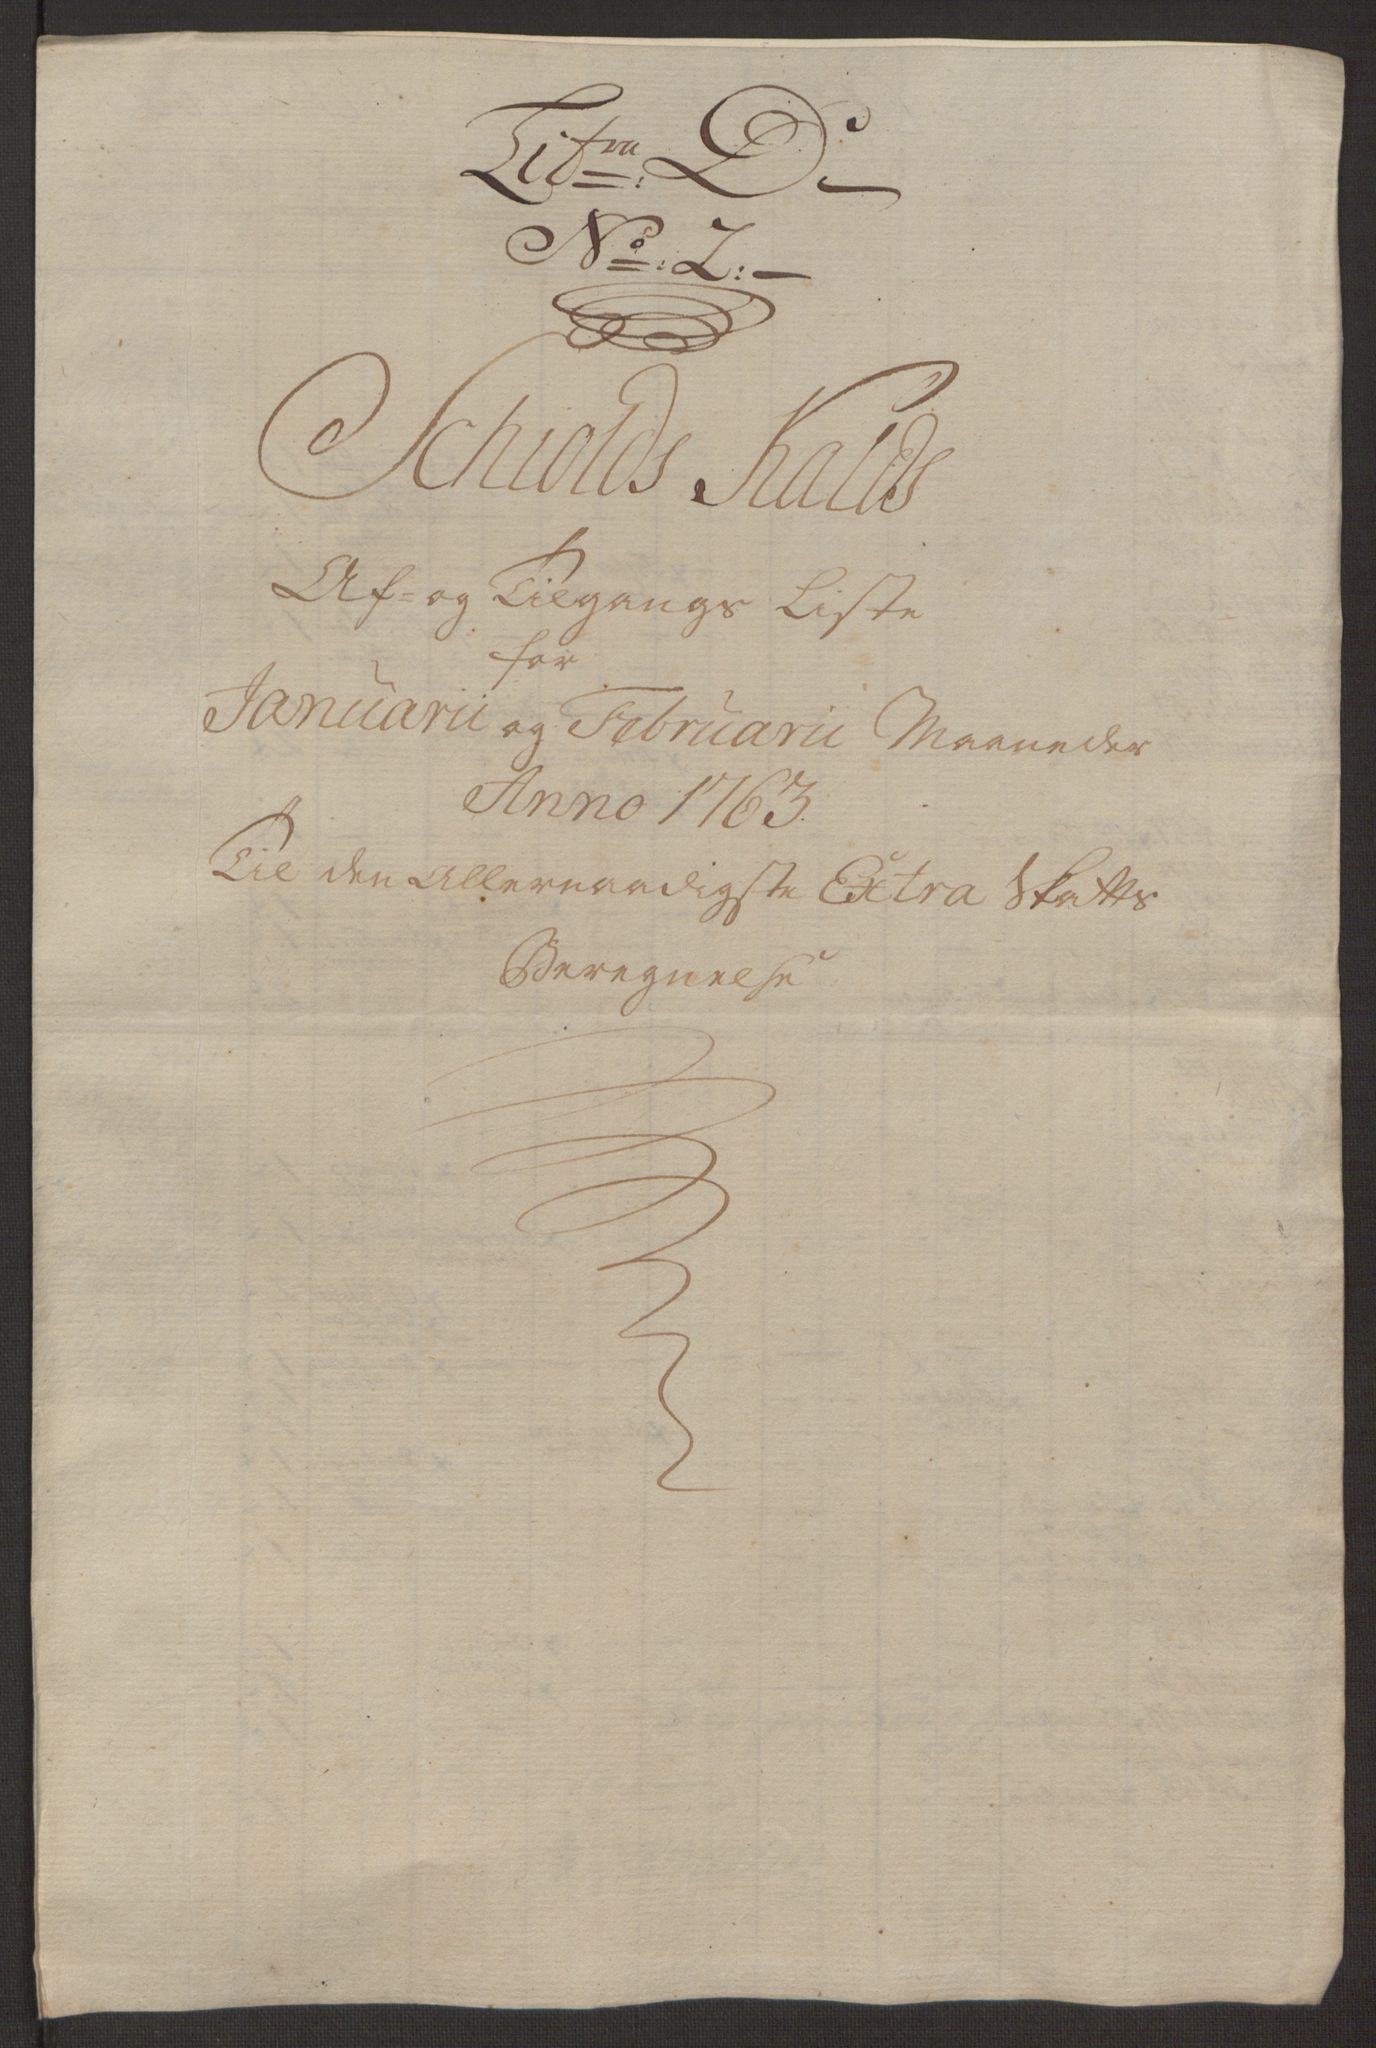 Lit̲r̲a̲: D.
No: 2:
Schiolds Kalds
Af- og Tilgangs Liste
for
Januarii og Februarii Maaneder
Anno 1763.
Til den Allernaadigste Extra Skatts
Beregnelse